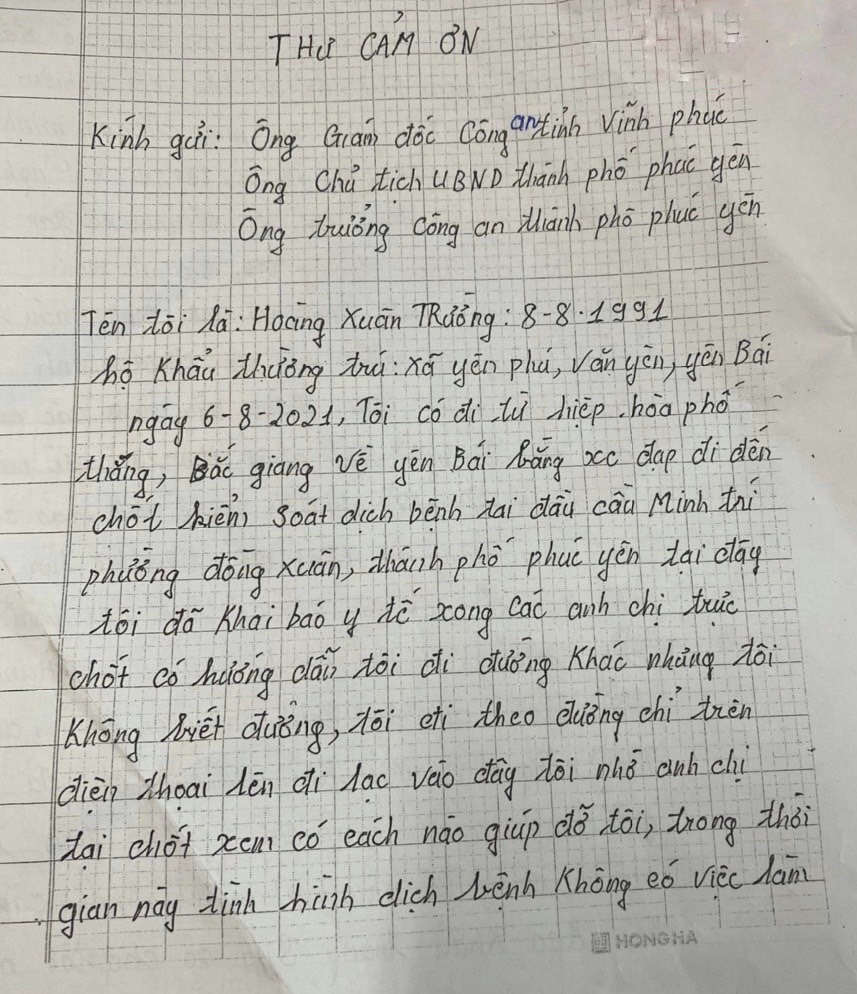 THƯ CẢM ƠN
Kính gửi: Ông Giám đốc Công an tỉnh Vĩnh phúc
Ông Chủ tịch UBND thành phố phúc yên
Ông trưởng Công an thành phố phúc yên
Tên tôi là: Hoàng Xuân TRường: 8-8-1991
hộ khẩu thường trú: xã yên phú, văn yên, yên Bái
ngày 6-8-2021, Tôi có đi từ hiệp hòa phố
thắng, Bắc giang về yên Bái bằng xe đạp đi đến
chốt kiểm soát dịch bệnh tại đầu cầu Minh trí
phường đồng xuân, thành phố phúc yên tại đây
tôi đã khai báo y tế xong các anh chị trực
chốt có hướng dẫn tôi đi đường khác nhưng tôi
không biết đường, tôi đi theo đường chỉ trên
điện thoại lên đi lạc vào đây tôi nhờ anh chị
tại chốt xem có cách nào giúp đỡ tôi, trong thời
gian này tình hình dịch bệnh không có việc làm
HONGHA